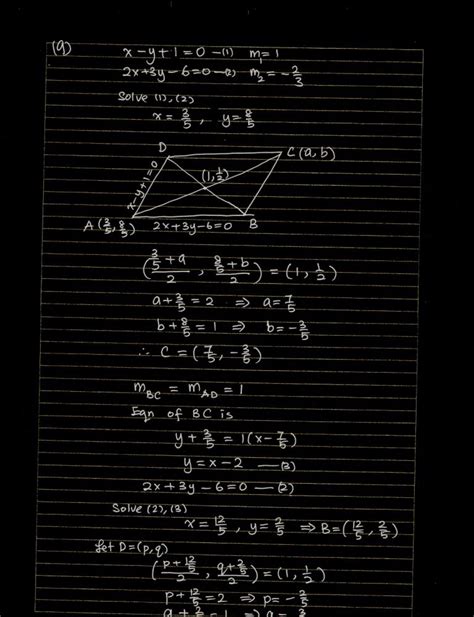 (9) x-y+1=0 -(1) m₁=1
2x+3y-6=0 -(2) m₂=-2/3
Solve (1),(2)
x=3/5, y=8/5
D
C(a,b)
(1,1/2)
x-y+1=0
A(3/5,8/5) 2x+3y-6=0 B
((3/5+a)/2, (8/5+b)/2) = (1,1/2)
a+3/5=2 ⇒ a=7/5
b+8/5=1 ⇒ b=-3/5
∴ C=(7/5,-3/5)
m_BC = m_AD = 1
Eqn of BC is
y+3/5 = 1(x-7/5)
y=x-2 —(3)
2x+3y-6=0 —(2)
Solve (2),(3)
x=12/5, y=2/5 ⇒ B=(12/5,2/5)
Let D=(p,q)
((p+12/5)/2, (q+2/5)/2) = (1,1/2)
p+12/5=2 ⇒ p=-2/5
q+2/5=1 ⇒ q=3/5